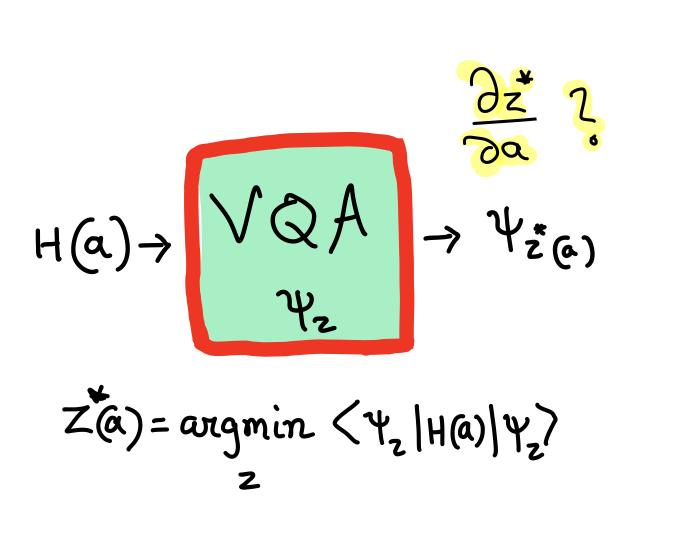 ∂z*/∂a ?
H(a) → VQA → Ψ_z*(a)
Ψ_z
z*(a) = argmin ⟨Ψ_z|H(a)|Ψ_z⟩
z